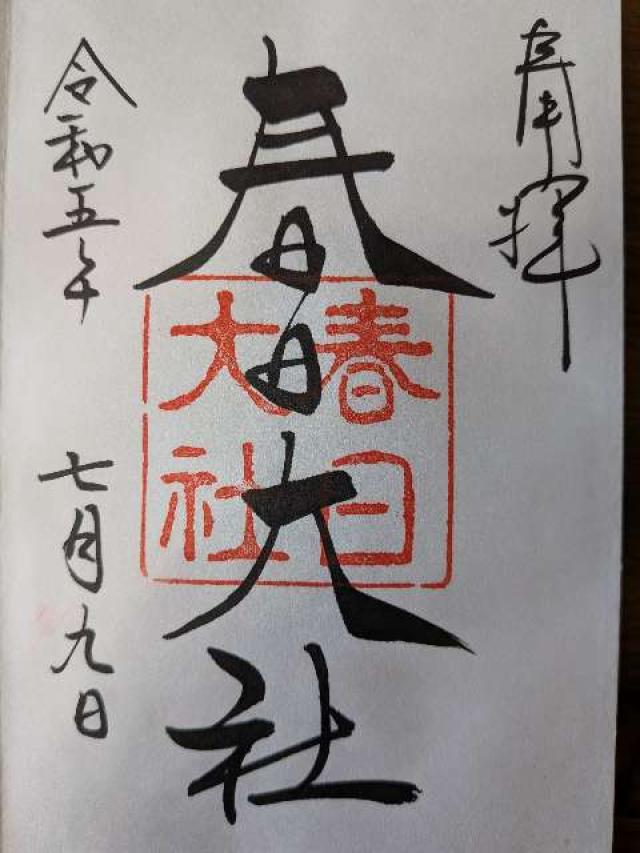 奉拝
春日大社
春日
大社
令和五年
七月九日